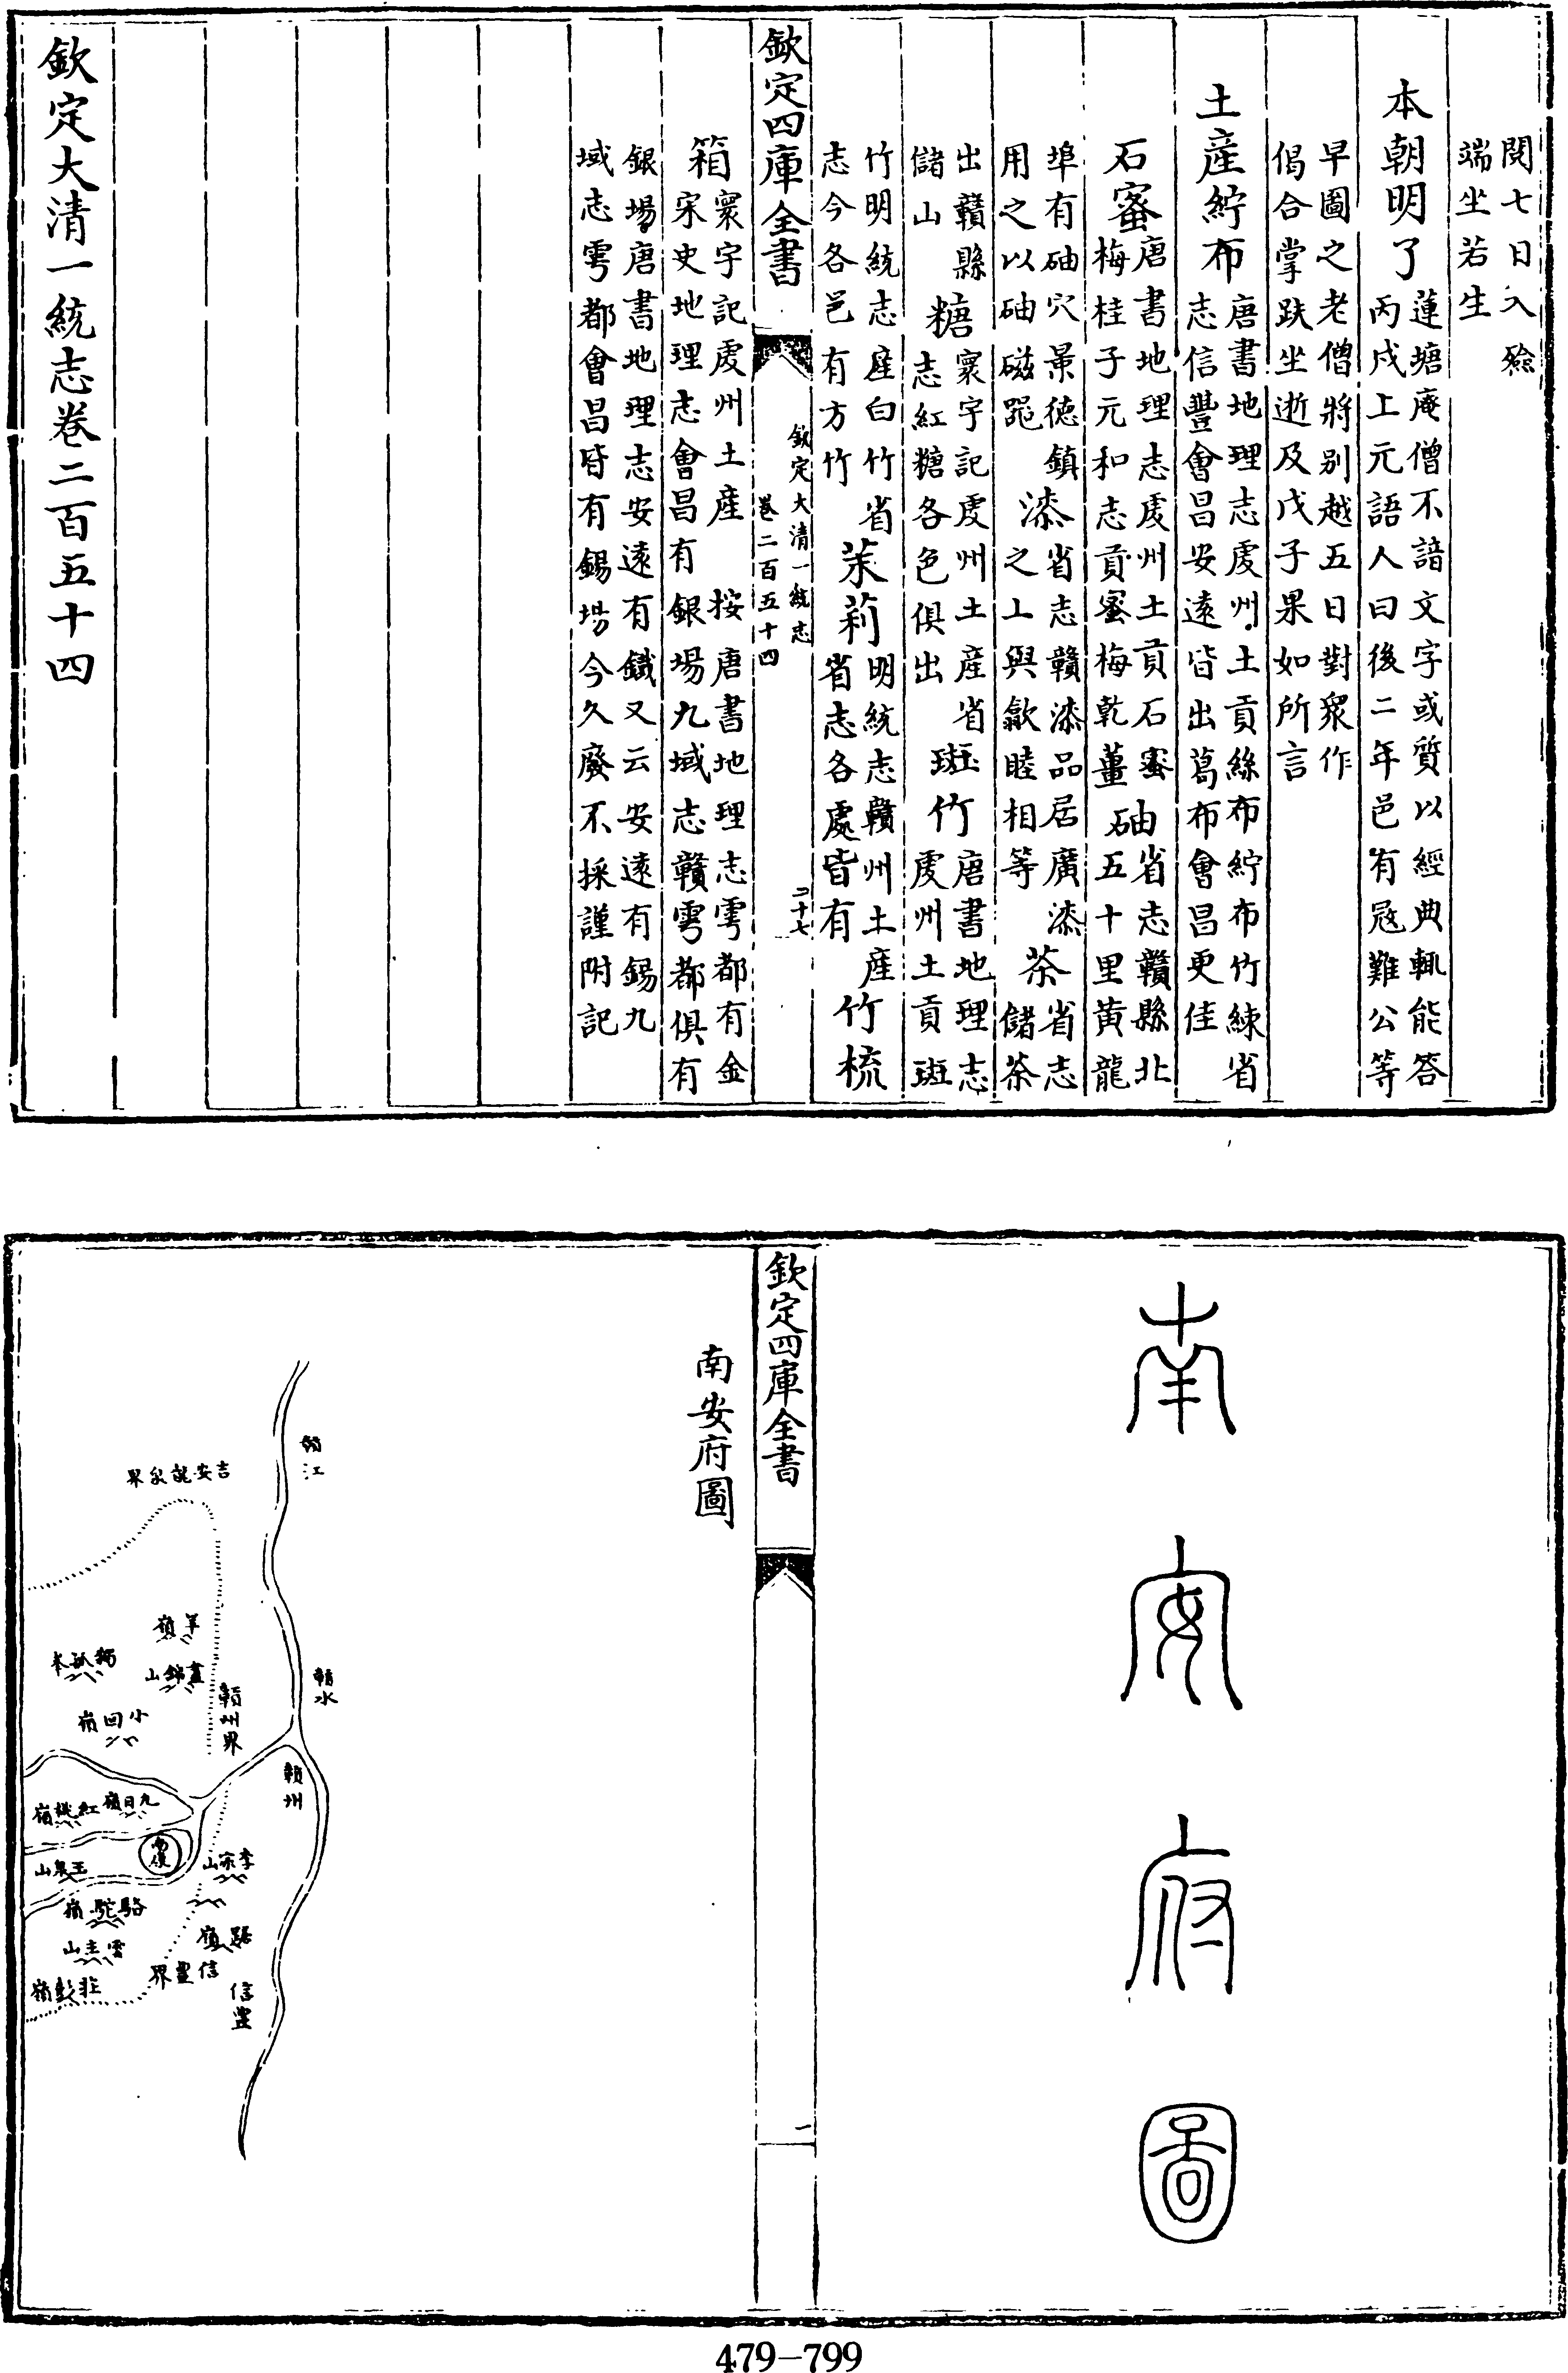 閱七日入殮
端坐若生
本朝明了
蓮塘庵僧不諳文字或質以經典輒能答
丙戌上元語人曰後二年邑有冦難公等
早圖之老僧將别越五日對眾作
偈合掌趺坐逝及戊子果如所言
土産
紵布
唐書地理志虔州土貢絲布紵布竹練省
志信豐會昌安逺皆出葛布會昌更佳
石蜜
唐書地理志虔州土貢石蜜
梅桂子元和志貢蜜梅乾薑
砂
省志贛縣北
五十里黄龍
埠有砂穴景徳鎮
用之以砂磁跪
漆
省志贛漆品居廣漆
之上與歙睦相等
茶
省志
儲茶
出贛縣
儲山
糖
寰宇記虔州土産省
志紅糖各色俱出
斑竹
唐書地理志
虔州土貢斑
竹明統志産白竹省
志今各邑有方竹
茉莉
明統志贛州土産
省志各處皆有
竹梳
欽定四庫全書
欽定大清一統志
卷二百五十四
二十七
箱
寰宇記虔州土産 按唐書地理志雩都有金
宋史地理志會昌有銀場九域志贛雩都俱有
銀場唐書地理志安逺有鐵又云安逺有錫九
域志雩都會昌皆有錫場今久廢不採謹附記
欽定大清一統志卷二百五十四
南安府圖
欽定四庫全書
一
南安府圖
贛江
吉安龍泉界
贛水
羊嶺
獨孤本
畫錦山
贛州界
小回嶺
贛州
九日嶺
紅桃嶺
南康
李家山
玉泉山
駱駝嶺
雲主山
信豐界
信豐
479-799